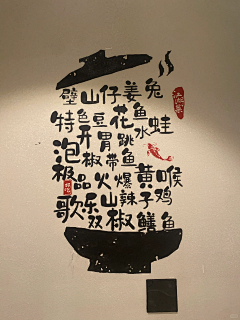 壁山仔姜兔
江湖菜
特色豆花鱼
开胃跳水蛙
泡椒带鱼
极品火爆黄喉
歌乐山辣子鸡
双椒鳝鱼